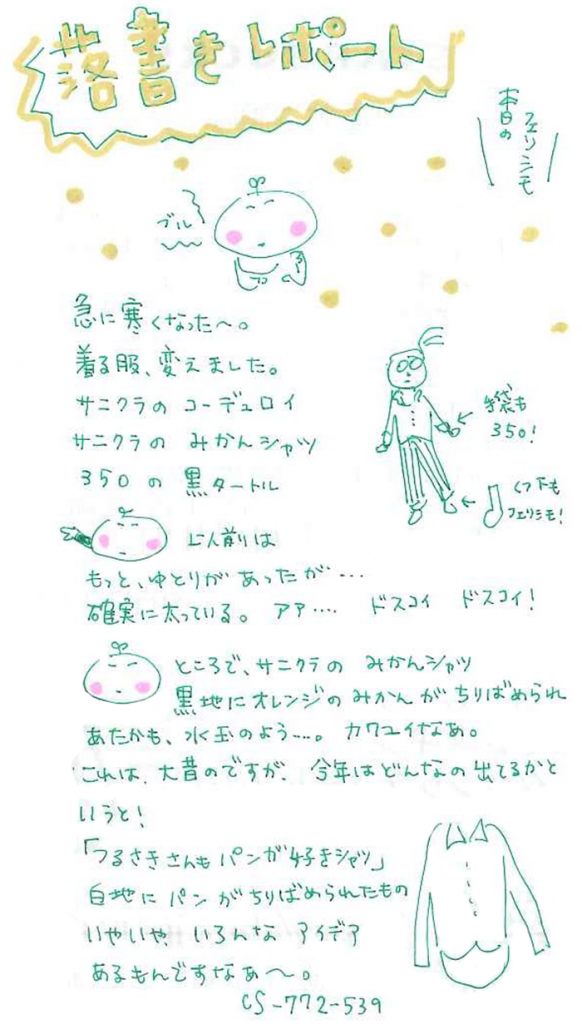 落書きレポート
本日の
フェリシモ
ブルッ
急に寒くなった〜。
着る服、変えました。
サニクラの コーデュロイ
サニクラの みかんシャツ
350の 黒タートル
手袋も
350!
くつ下も
フェリシモ!
以前は
もっと、ゆとりが あったが…
確実に太っている。 アァ…. ドスコイ ドスコイ!
ところで、サニクラの みかんシャツ
黒地にオレンジの みかん が ちりばめられ
あたかも、水玉のよう…。 カワユイなぁ。
これは、大昔のですが、今年はどんなの出てるかと
いうと!
「つるさきさんも パンが好きシャツ」
白地に パン がちりばめられたもの
いやいや、いろんな アイデア
あるもんですなぁ〜。
CS-772-539